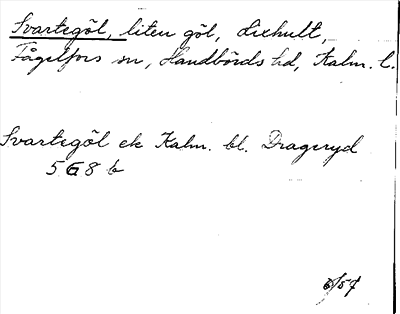 Svartegöl, liten göl, Lixhult,
Fågelfors sn, Handbörds hd, Kalm. l.
Svartegöl ek Kalm. bl. Drageryd
5 G 8 b
6/57